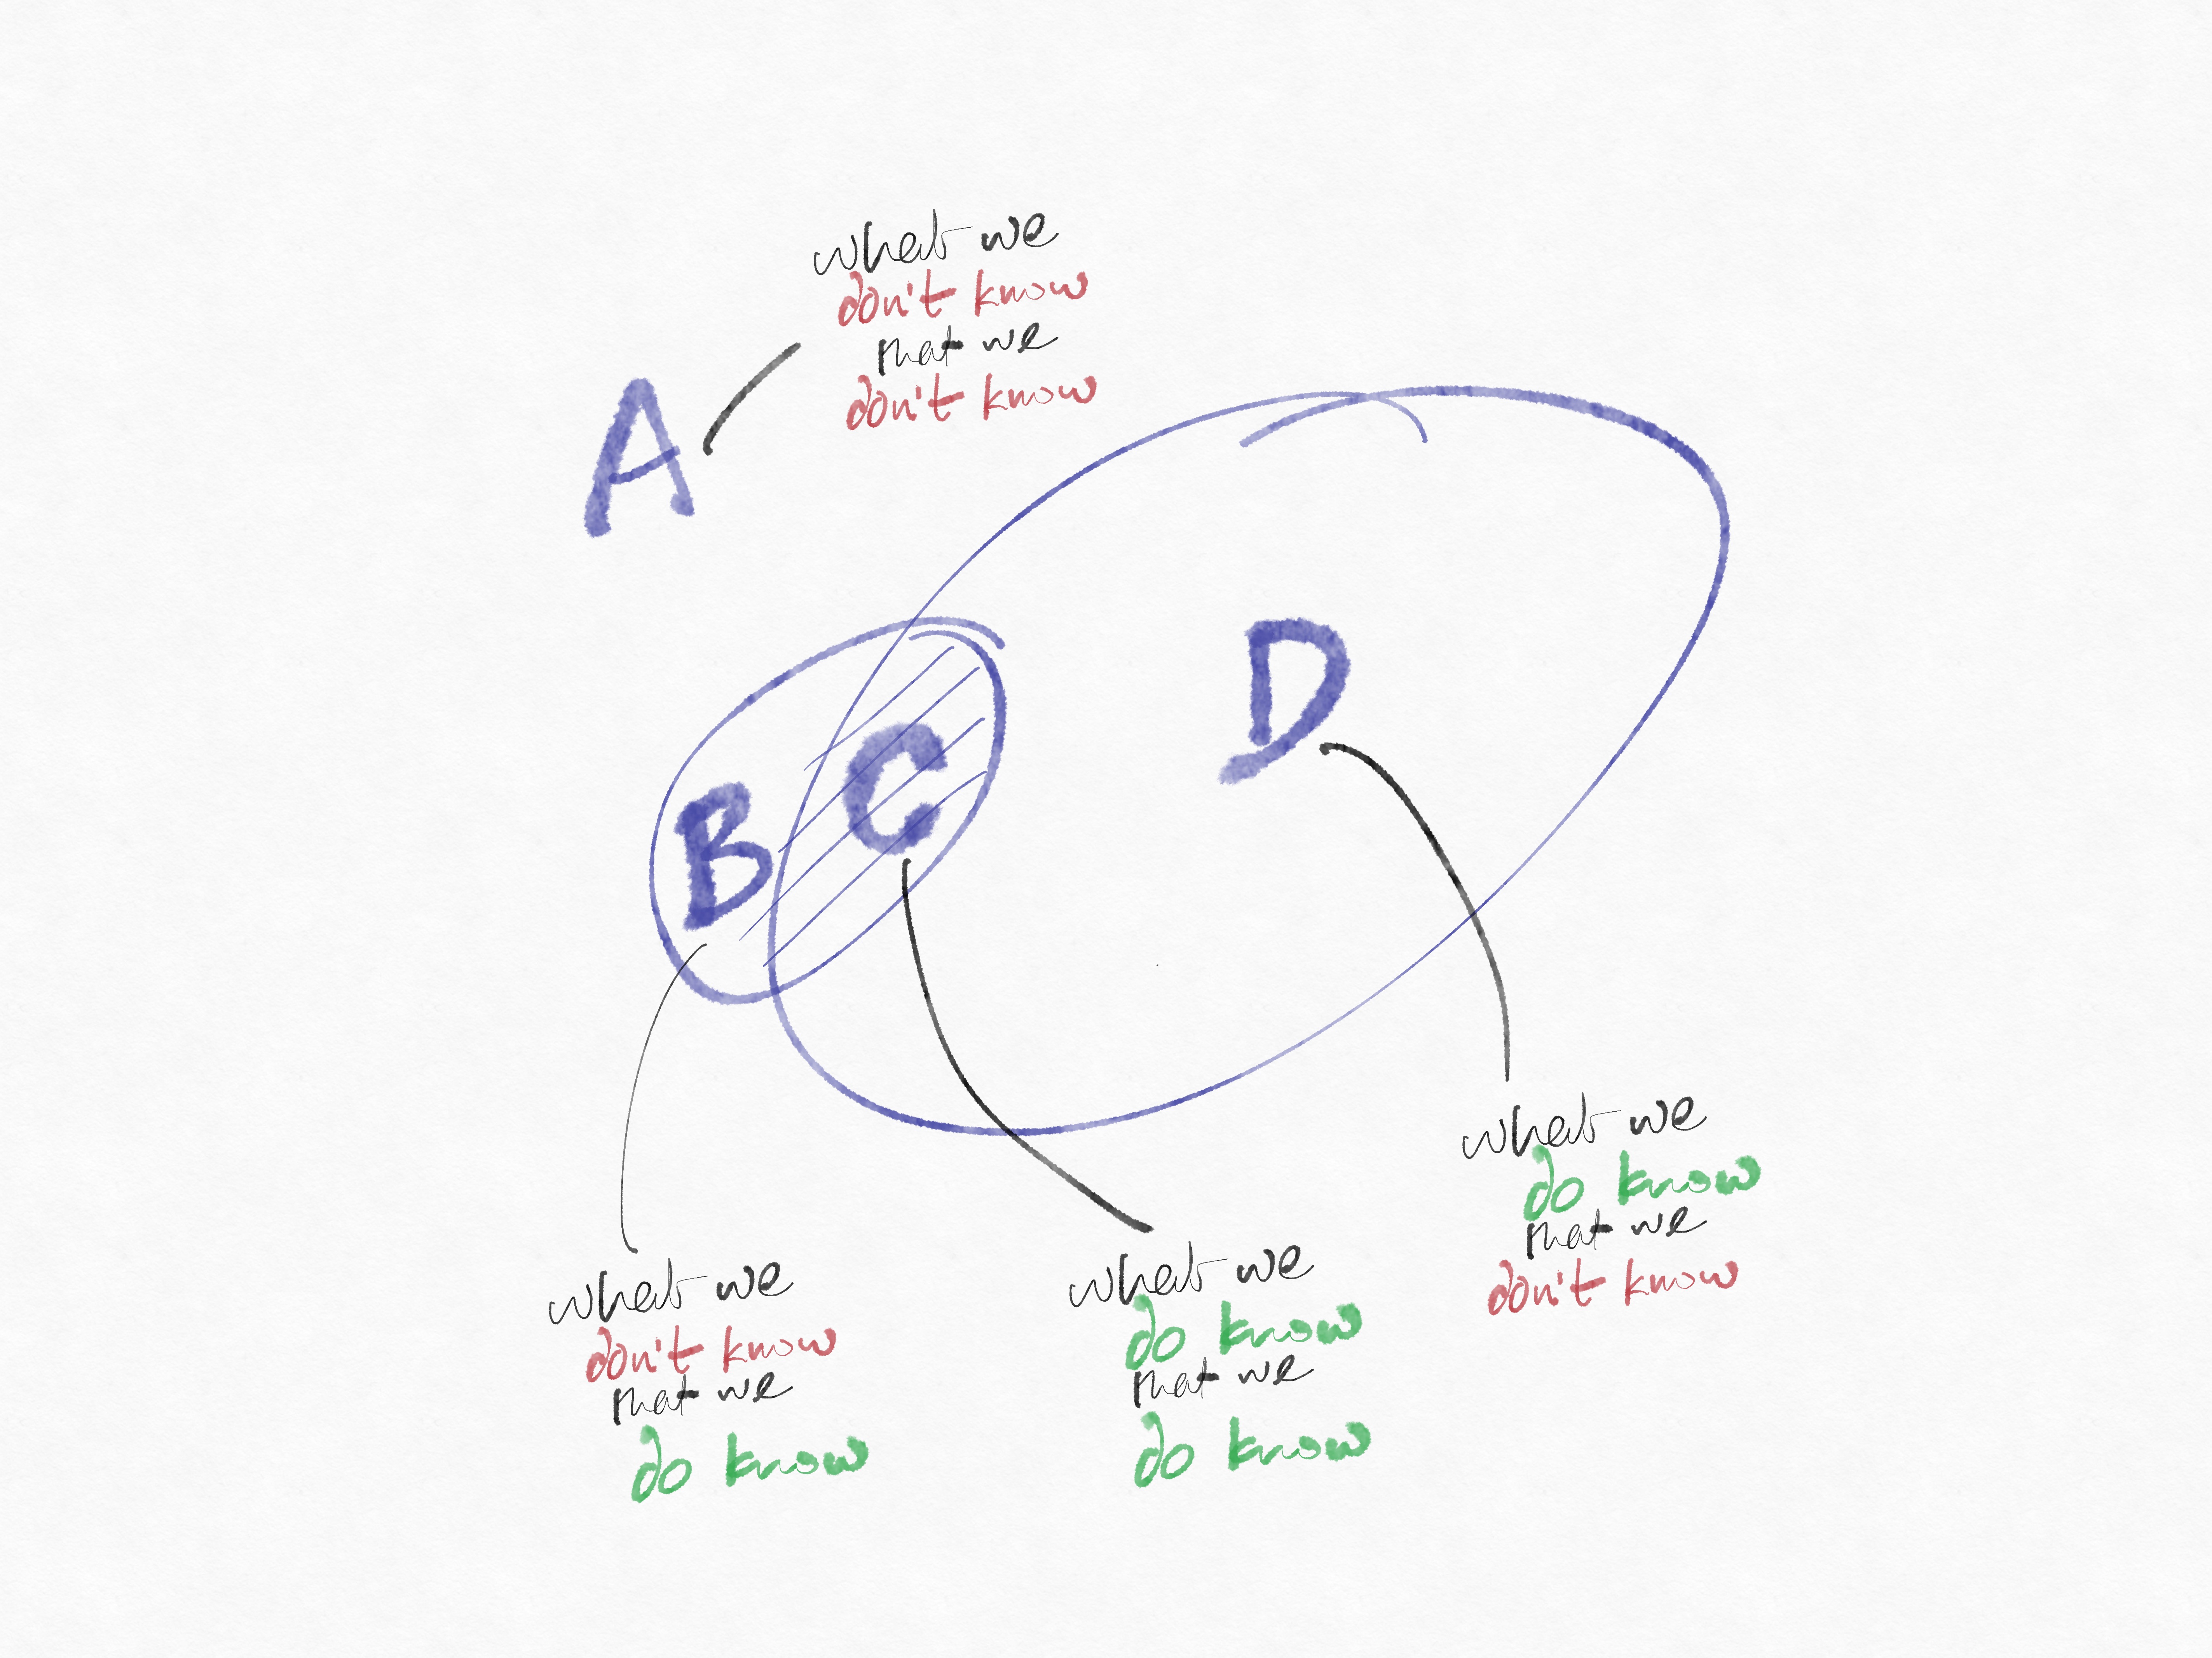 what we
don't know
that we
don't know
A
D
C
B
what we
do know
that we
don't know
what we
do know
that we
do know
what we
don't know
that we
do know